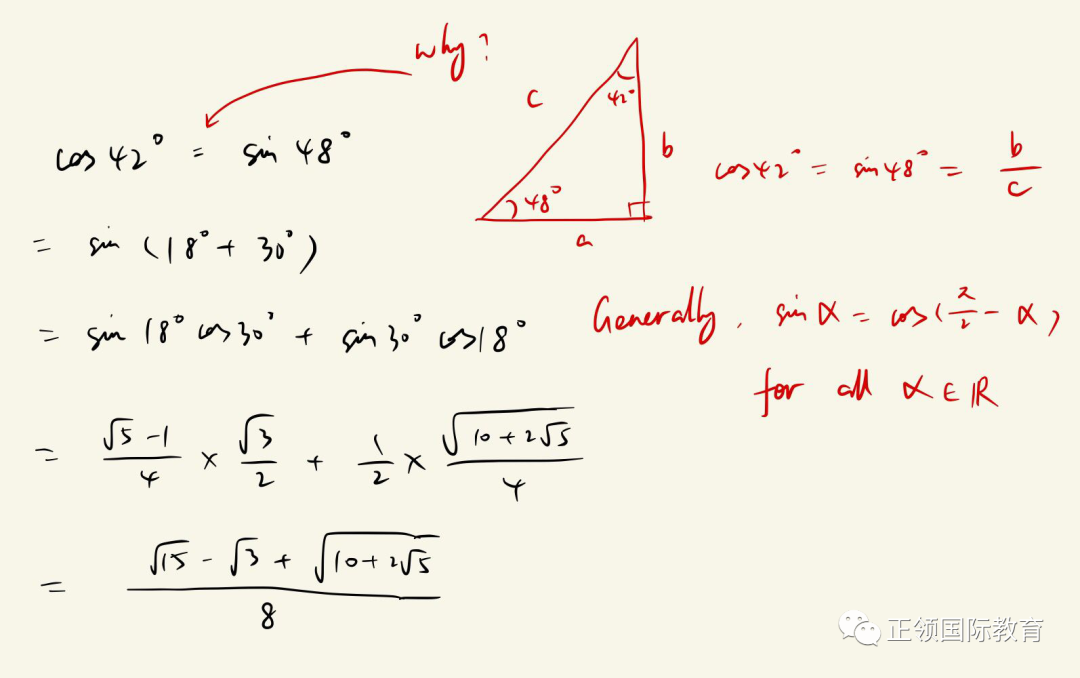 why?
cos 42° = sin 48°
= sin (18° + 30°)
= sin 18° cos 30° + sin 30° cos 18°
= (√5 - 1)/4 × √3/2 + 1/2 × √(10 + 2√5)/4
= (√15 - √3 + √(10 + 2√5))/8
c
42°
b
48°
a
cos 42° = sin 48° = b/c
Generally, sin α = cos(π/2 - α)
for all α ∈ ℝ
正领国际教育